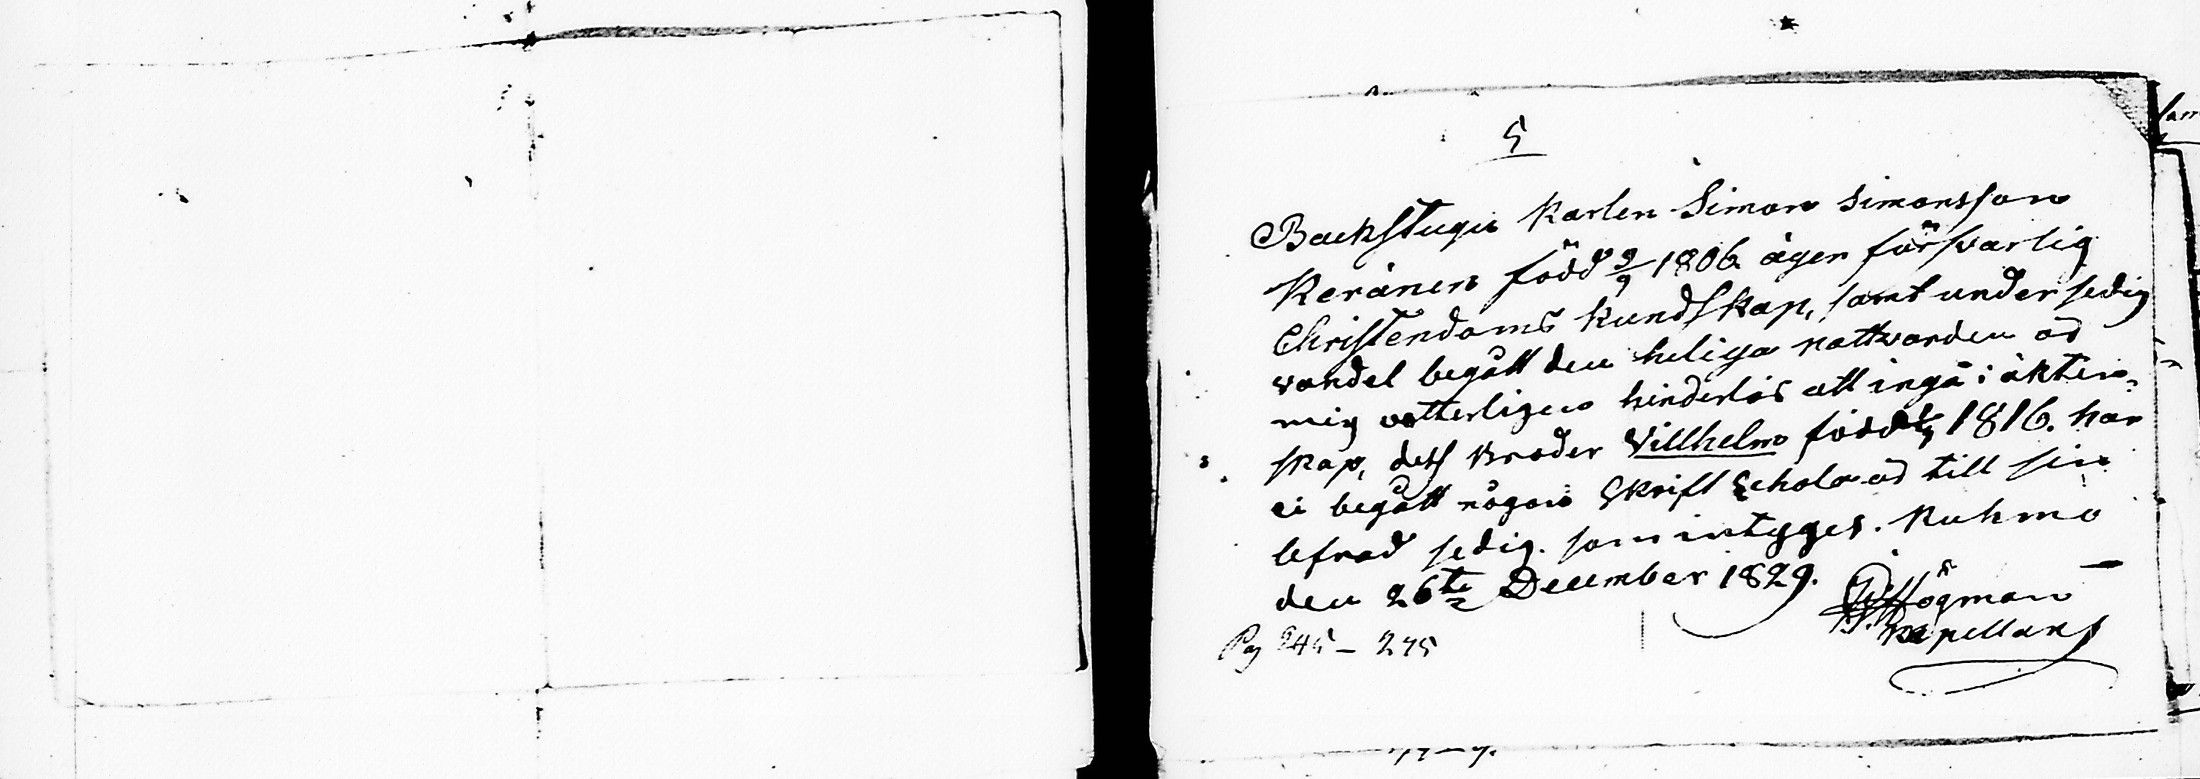 5
Backstugu Karlen Simon Simonsson
Keränen född 9/9 1806 äger försvarlig
Christendoms Kundskap, samt under sedig
vandel begått den heliga nattvarden och
mig vetterligen hinderlös att ingå i äkten-
skap, dess Broder Villhelm född 1816. har
ei begått någon Skrift Schola och till sin
lefnad sedig. som intyges. Kuhmo
den 26te December 1829.
Högman
Kapellan
Pag 245 – 275